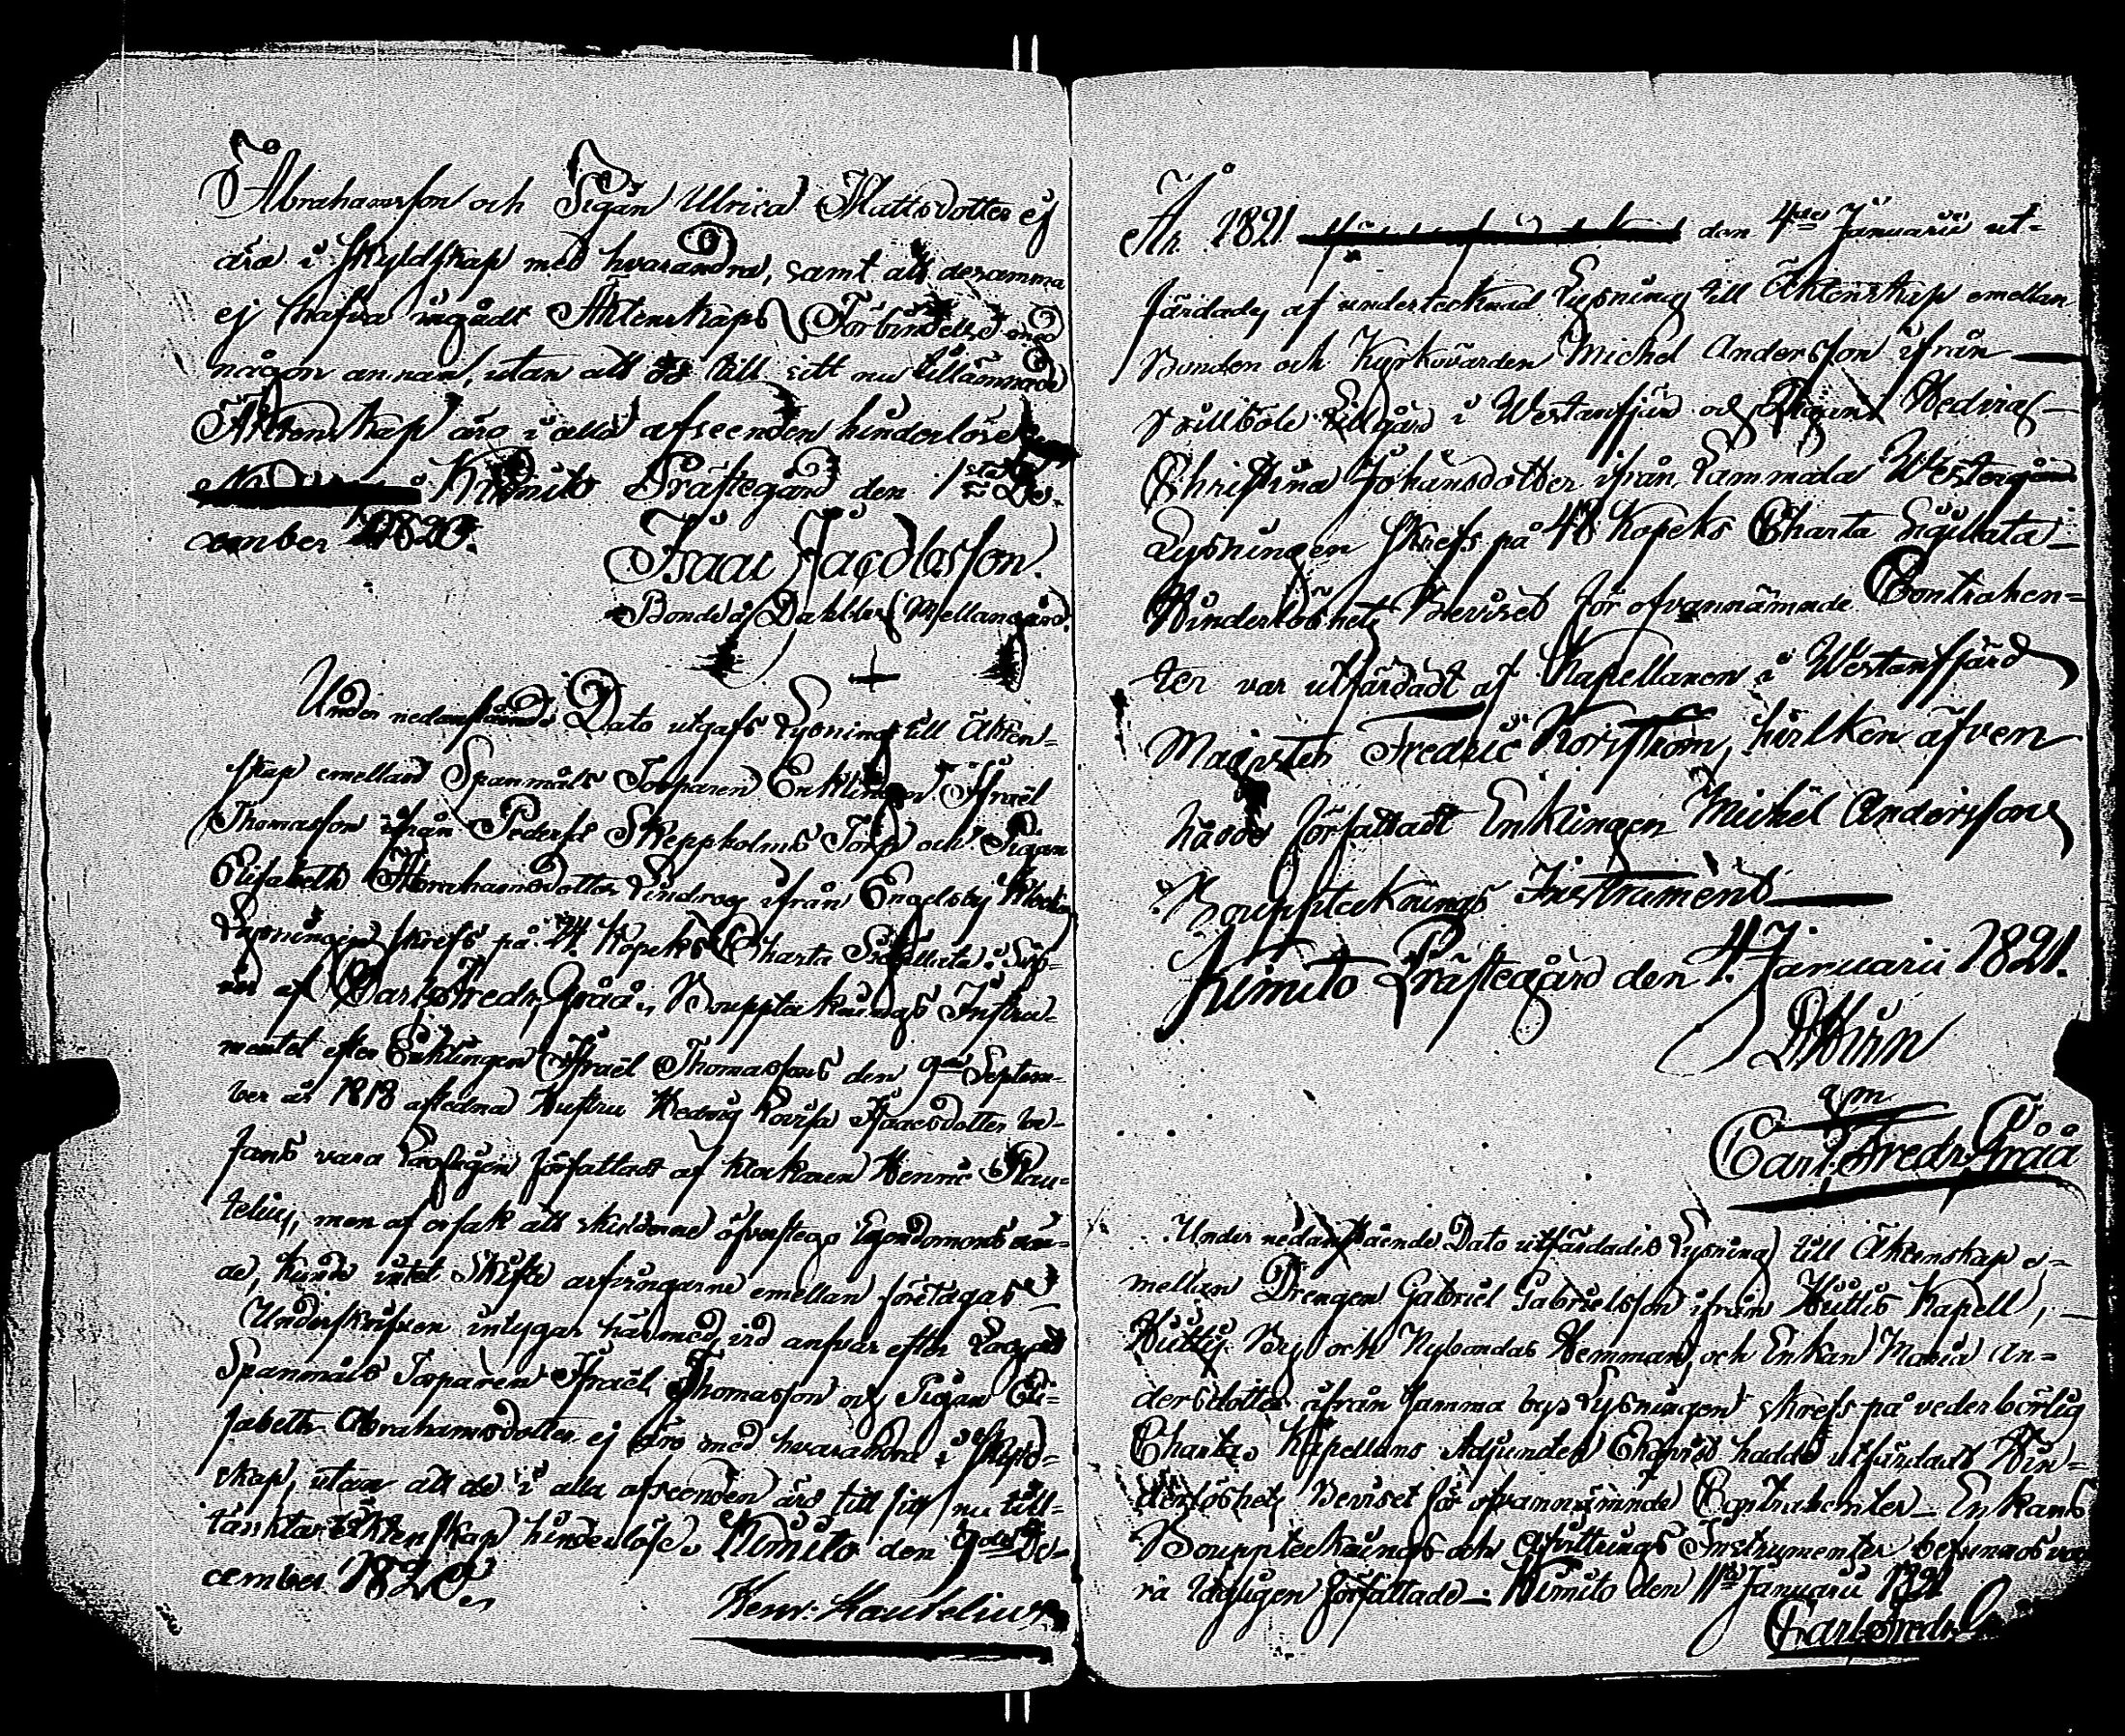 Abrahamsson och Pigan Ulrica Mattsdotter ej
ära i skyldskap med hvarandra, samt att desamma
ej hafva ingådt Äktenskaps Förbindelse med
någon annan, utan att till sitt nu tillämnade
Äktenskap äro i alla afseenden hinderlöse
Kimito Prästegård den 1sta De-
cember 1820.
Isaac Jacobsson.
Bonde å Mellangård.
Under nedanstående Dato utgafs Lysning till Äkten-
skap emellan Spanmåls Torparen Enklingen Israël
Thomasson ifrån Skeppholms Torp och Pigan
Elisabeth Abrahamsdotter ifrån Engelsby
Lysningen skrefs på 24 Kopeks Charta Sigillata.
af Carl Fredr. Gråå. Bouppteknings Instru-
mentet efter Enklingen Israël Thomassons den 9de Septem-
ber år 1818 aflidna Hustru Hedvig Lovisa Isaacsdotter be-
fans vara Lagligen författadt af Klockaren Henric Kau-
telius, men af orsak att skulderne öfverstego Egendomens vär-
de, kunde intet Skifte arfvingarne emellan företagas
Underskrifven intygar härmed, vid ansvar efter Lag, att
Spanmåls Torparen Israël Thomasson och Pigan Eli-
sabeth Abrahamsdotter ej äro med hvarandra i Skyld-
skap, utan att de i alla afseenden äro till sitt nu till-
tänktar Äktenskap hinderlöse. Kimito den 9de De-
cember 1820.
Henr. Kautelius
År 1821 den 4de Januarii ut-
färdades af undertecknad Lysning till Äktenskap emellan
Bonden och Kyrkovärden Michel Andersson ifrån
Lillgård i Westanfjärd och Pigan Hedvig
Christina Johansdotter ifrån Lammala Westergård
Lysningen skrefs på 48 Kopeks Charta Sigillata
Hinderlöshets Beviset för ofvannämnde Contrahen-
ter var utfärdadt af Kapellanen i Westanfjärd
Magister Fredric Norrström, hvilken äfven
hade författadt Enklingen Michel Anderssons
Bouppteknings Instrument
Kimito Prästegård den 4. Januarii 1821.
gm
Carl Fredr. Gråå
Under nedanstående Dato utfärdades Lysning till Äktenskap e-
mellan Drengen Gabriel Gabrielsson ifrån Hittis Kapell,
Hittis By och Nybondas Hemman, och Enkan Maria An-
dersdotter ifrån samma by. Lysningen skrefs på vederbörlig
Charta. Kapellans Adjuncten hade utfärdadt Hin-
derlöshets Beviset för ofvannämnde Contrahenter. Enkans
Bouppteknings och Afvittrings Instrumenter befunnos va-
ra lagligen författade. Kimito den 11te Januarii 1821
Carl Fredr.